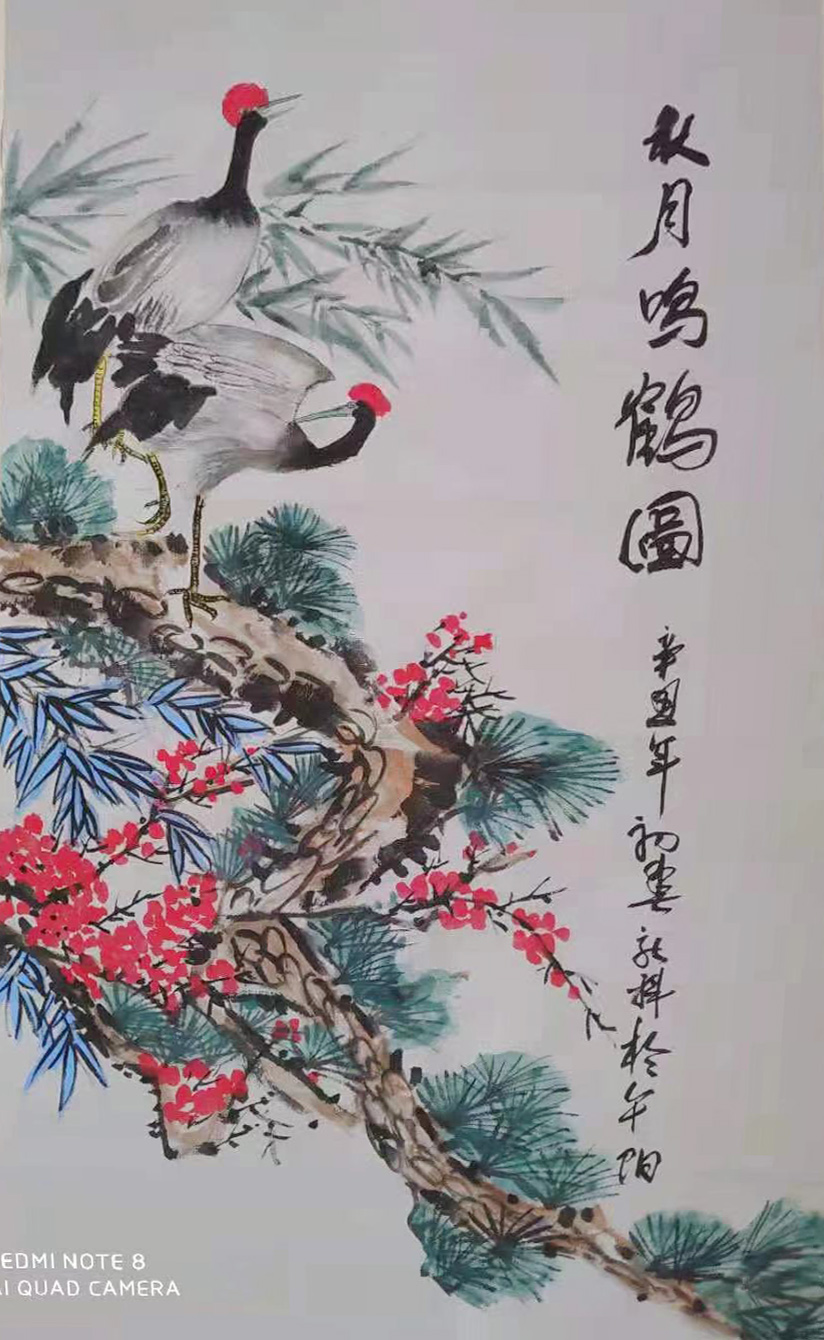 秋月鸣鹤圖
辛丑年初娄 於午阳
EDMI NOTE 8
AI QUAD CAMERA